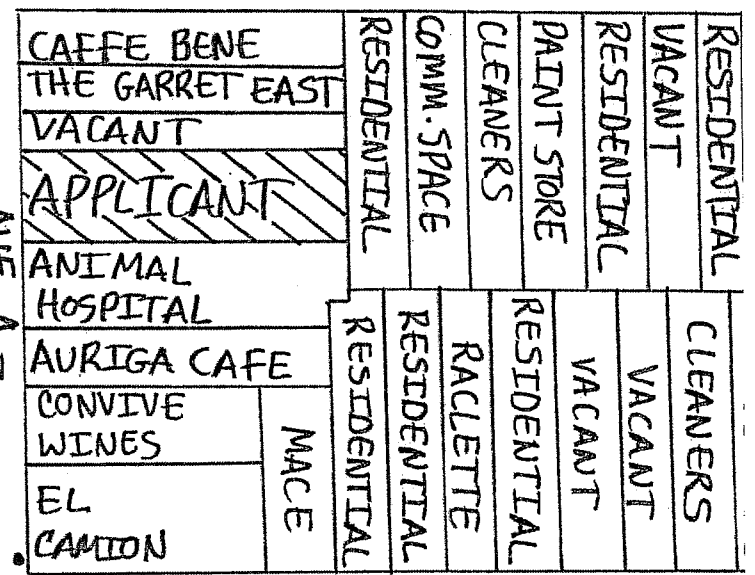 CAFFE BENE
THE GARRET EAST
VACANT
APPLICANT
ANIMAL
HOSPITAL
AURIGA CAFE
CONVIVE
WINES
EL
CAMION
MACE
RESIDENTIAL
COMM. SPACE
CLEANERS
PAINT STORE
RESIDENTIAL
VACANT
RESIDENTIAL
RESIDENTIAL
RESIDENTIAL
RACLETTE
RESIDENTIAL
VACANT
VACANT
CLEANERS
AVE A